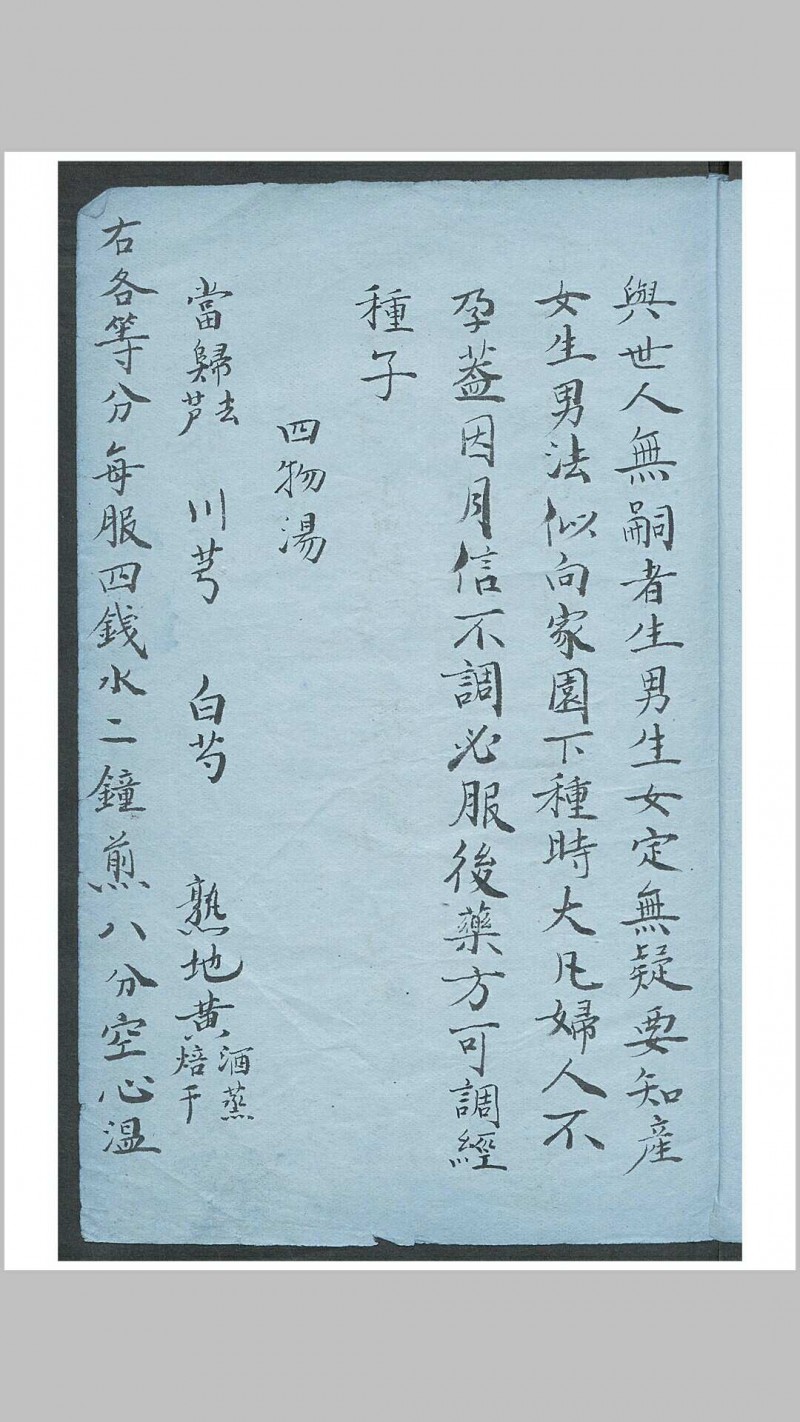 與世人無嗣者生男生女定無疑要知產
女生男法似向家園下種時大凡婦人不
孕蓋因月信不調必服後藥方可調經
種子
四物湯
當歸去芦 川芎 白芍 熟地黃酒蒸焙干
右各等分每服四錢水二鐘煎八分空心溫